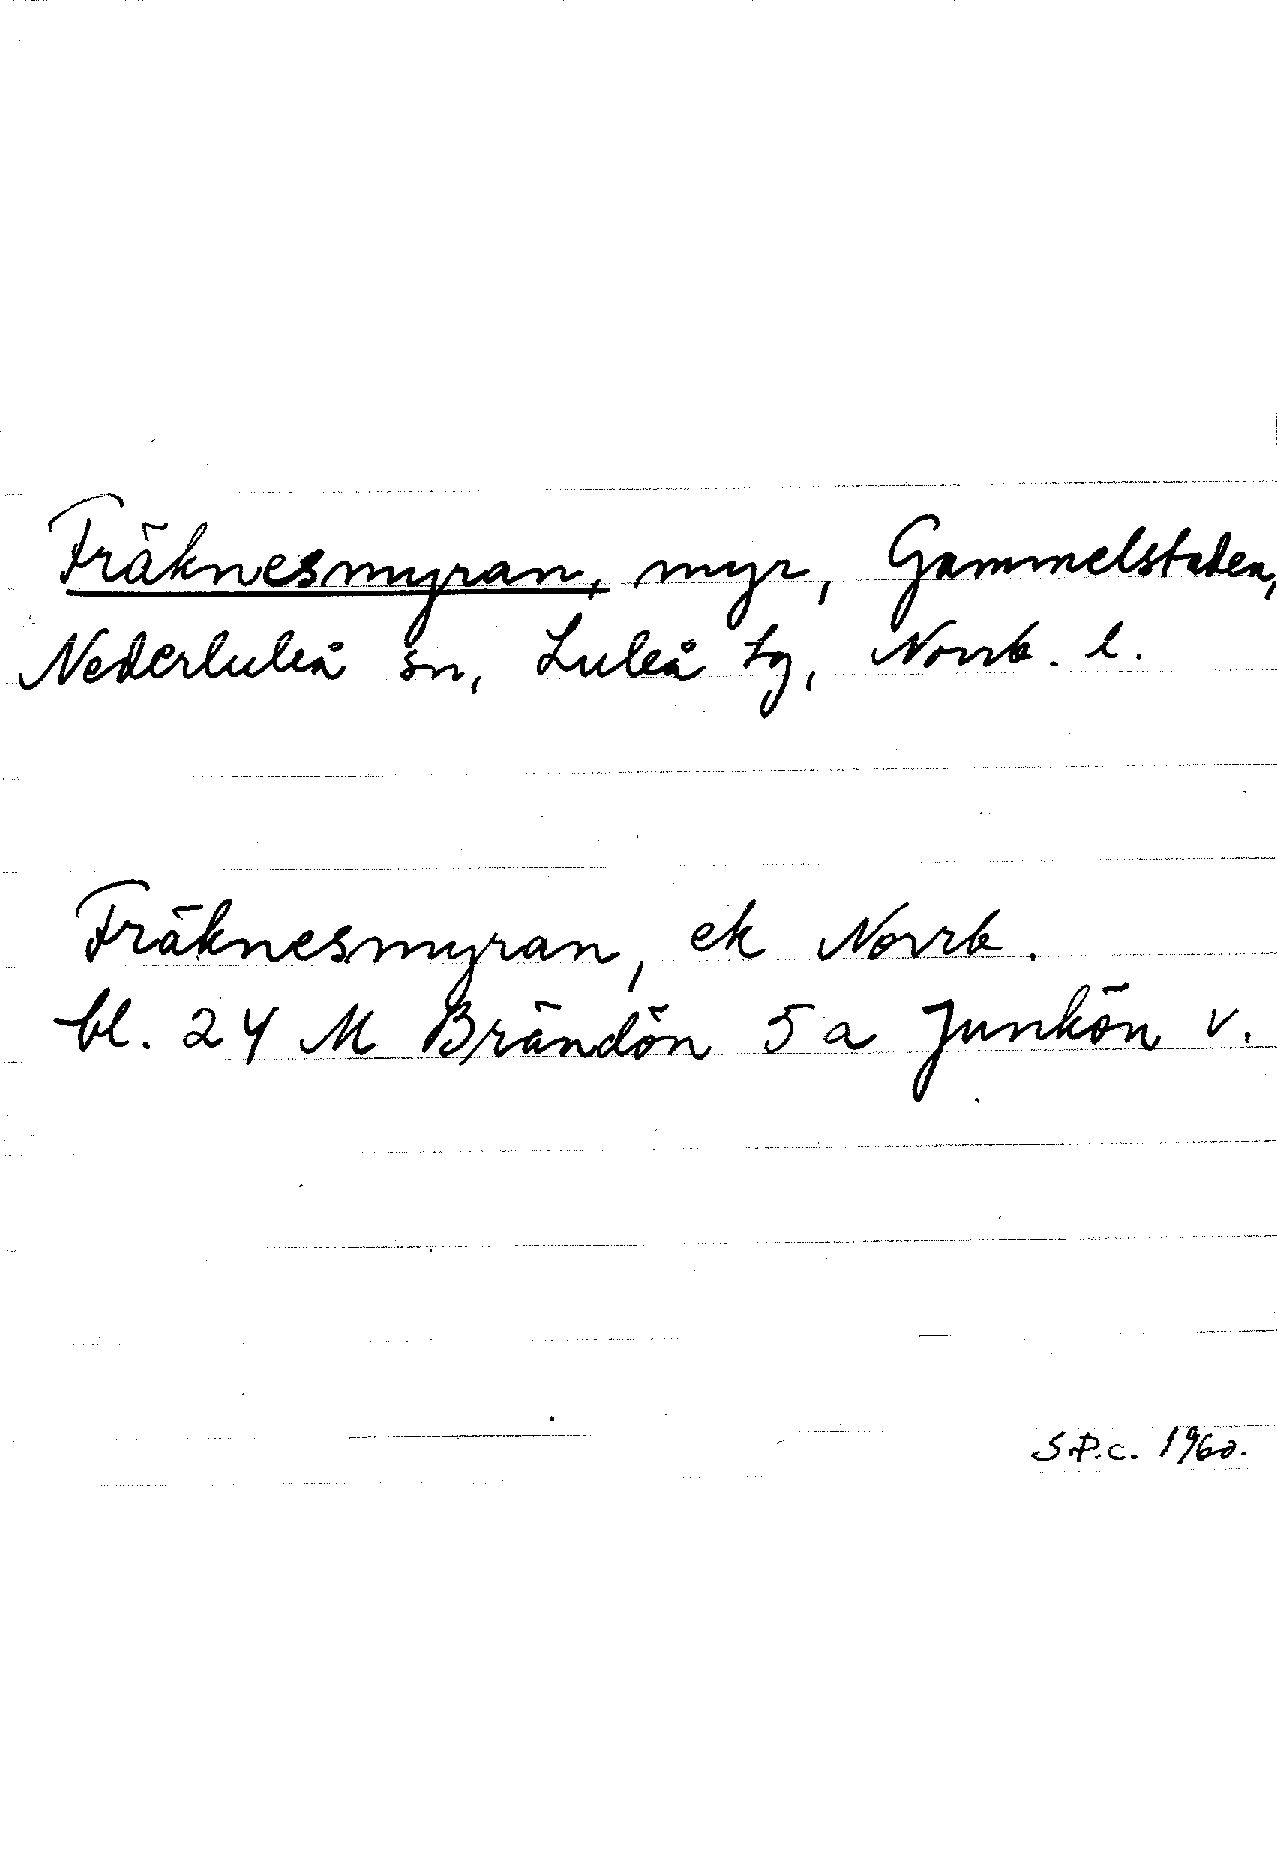 Fräknesmyran, myr, Gammelstaden,
Nederluleå sn, Luleå tg, Norrb. l.
Fräknesmyran, ek Norrb.
bl. 24 M Brändön 5 a Junkön v.
S.P.c. 1960.